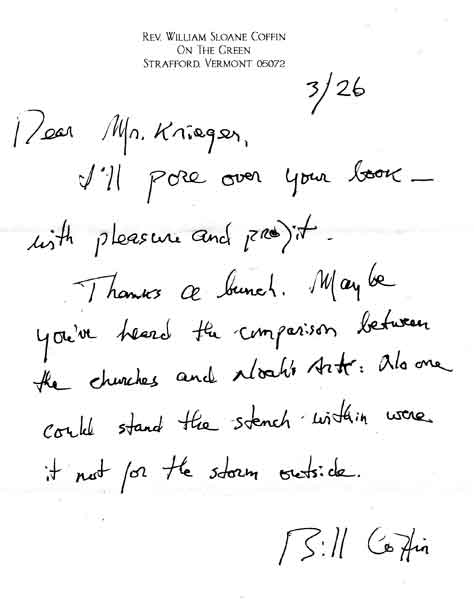 REV. WILLIAM SLOANE COFFIN
ON THE GREEN
STRAFFORD, VERMONT 05072
3/26
Dear Mr. Krieger,
I'll pore over your book —
with pleasure and profit.
Thanks a bunch. Maybe
you've heard the comparison between
the churches and Noah's Ark: No one
could stand the stench within were
it not for the storm outside.
Bill Coffin